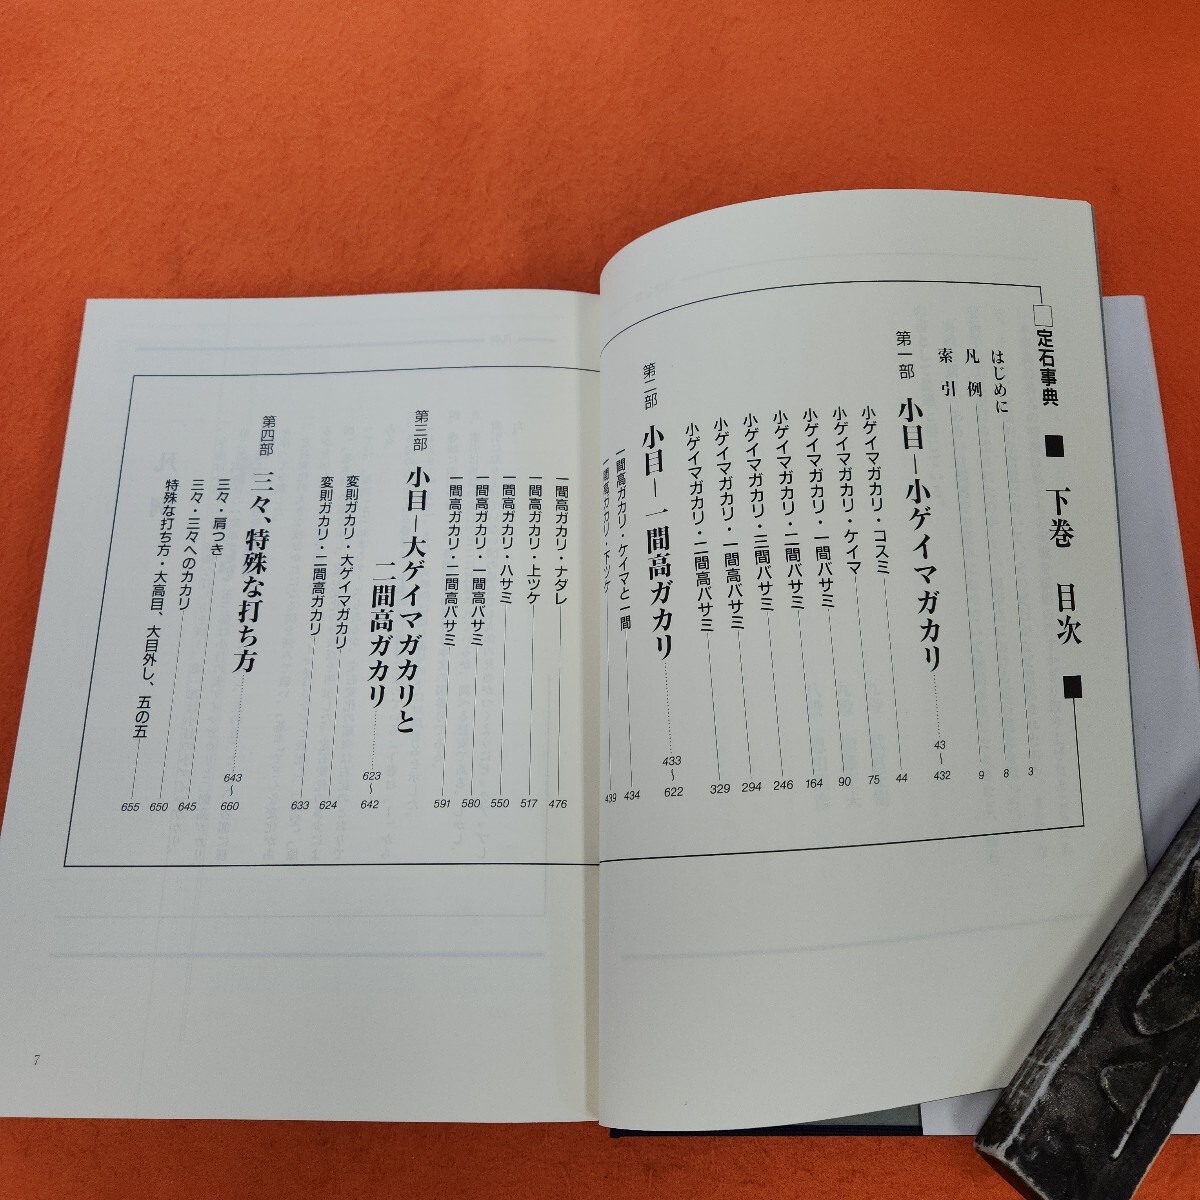 定石事典 ■ 下巻 目次 ■
はじめに 3
凡例 8
索引 9
第一部 小目―小ゲイマガカリ 43〜432
小ゲイマガカリ・コスミ 44
小ゲイマガカリ・ケイマ 75
小ゲイマガカリ・一間バサミ 90
小ゲイマガカリ・二間バサミ 164
小ゲイマガカリ・三間バサミ 246
小ゲイマガカリ・一間高バサミ 294
小ゲイマガカリ・二間高バサミ 329
第二部 小目―一間高ガカリ 433〜622
一間高ガカリ・ケイマと一間 434
一間高ガカリ・下ツケ 439
一間高ガカリ・ナダレ 476
一間高ガカリ・上ツケ 517
一間高ガカリ・ハサミ 550
一間高ガカリ・一間高バサミ 580
一間高ガカリ・二間高バサミ 591
第三部 小目―大ゲイマガカリと
二間高ガカリ 623〜642
変則ガカリ・大ゲイマガカリ 624
変則ガカリ・二間高ガカリ 633
第四部 三々、特殊な打ち方 643〜660
三々・肩つき 645
三々・三々へのカカリ 650
特殊な打ち方・大高目、大目外し、五の五 655
7